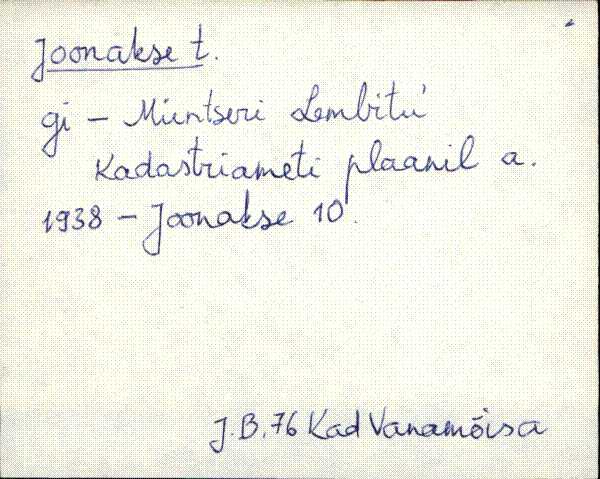 Joonakse t.
gi – Müntseri Lembitu'
Kadastriameti plaanil a.
1938 – Joonakse 10.
J.B.76 Kad Vanamõisa